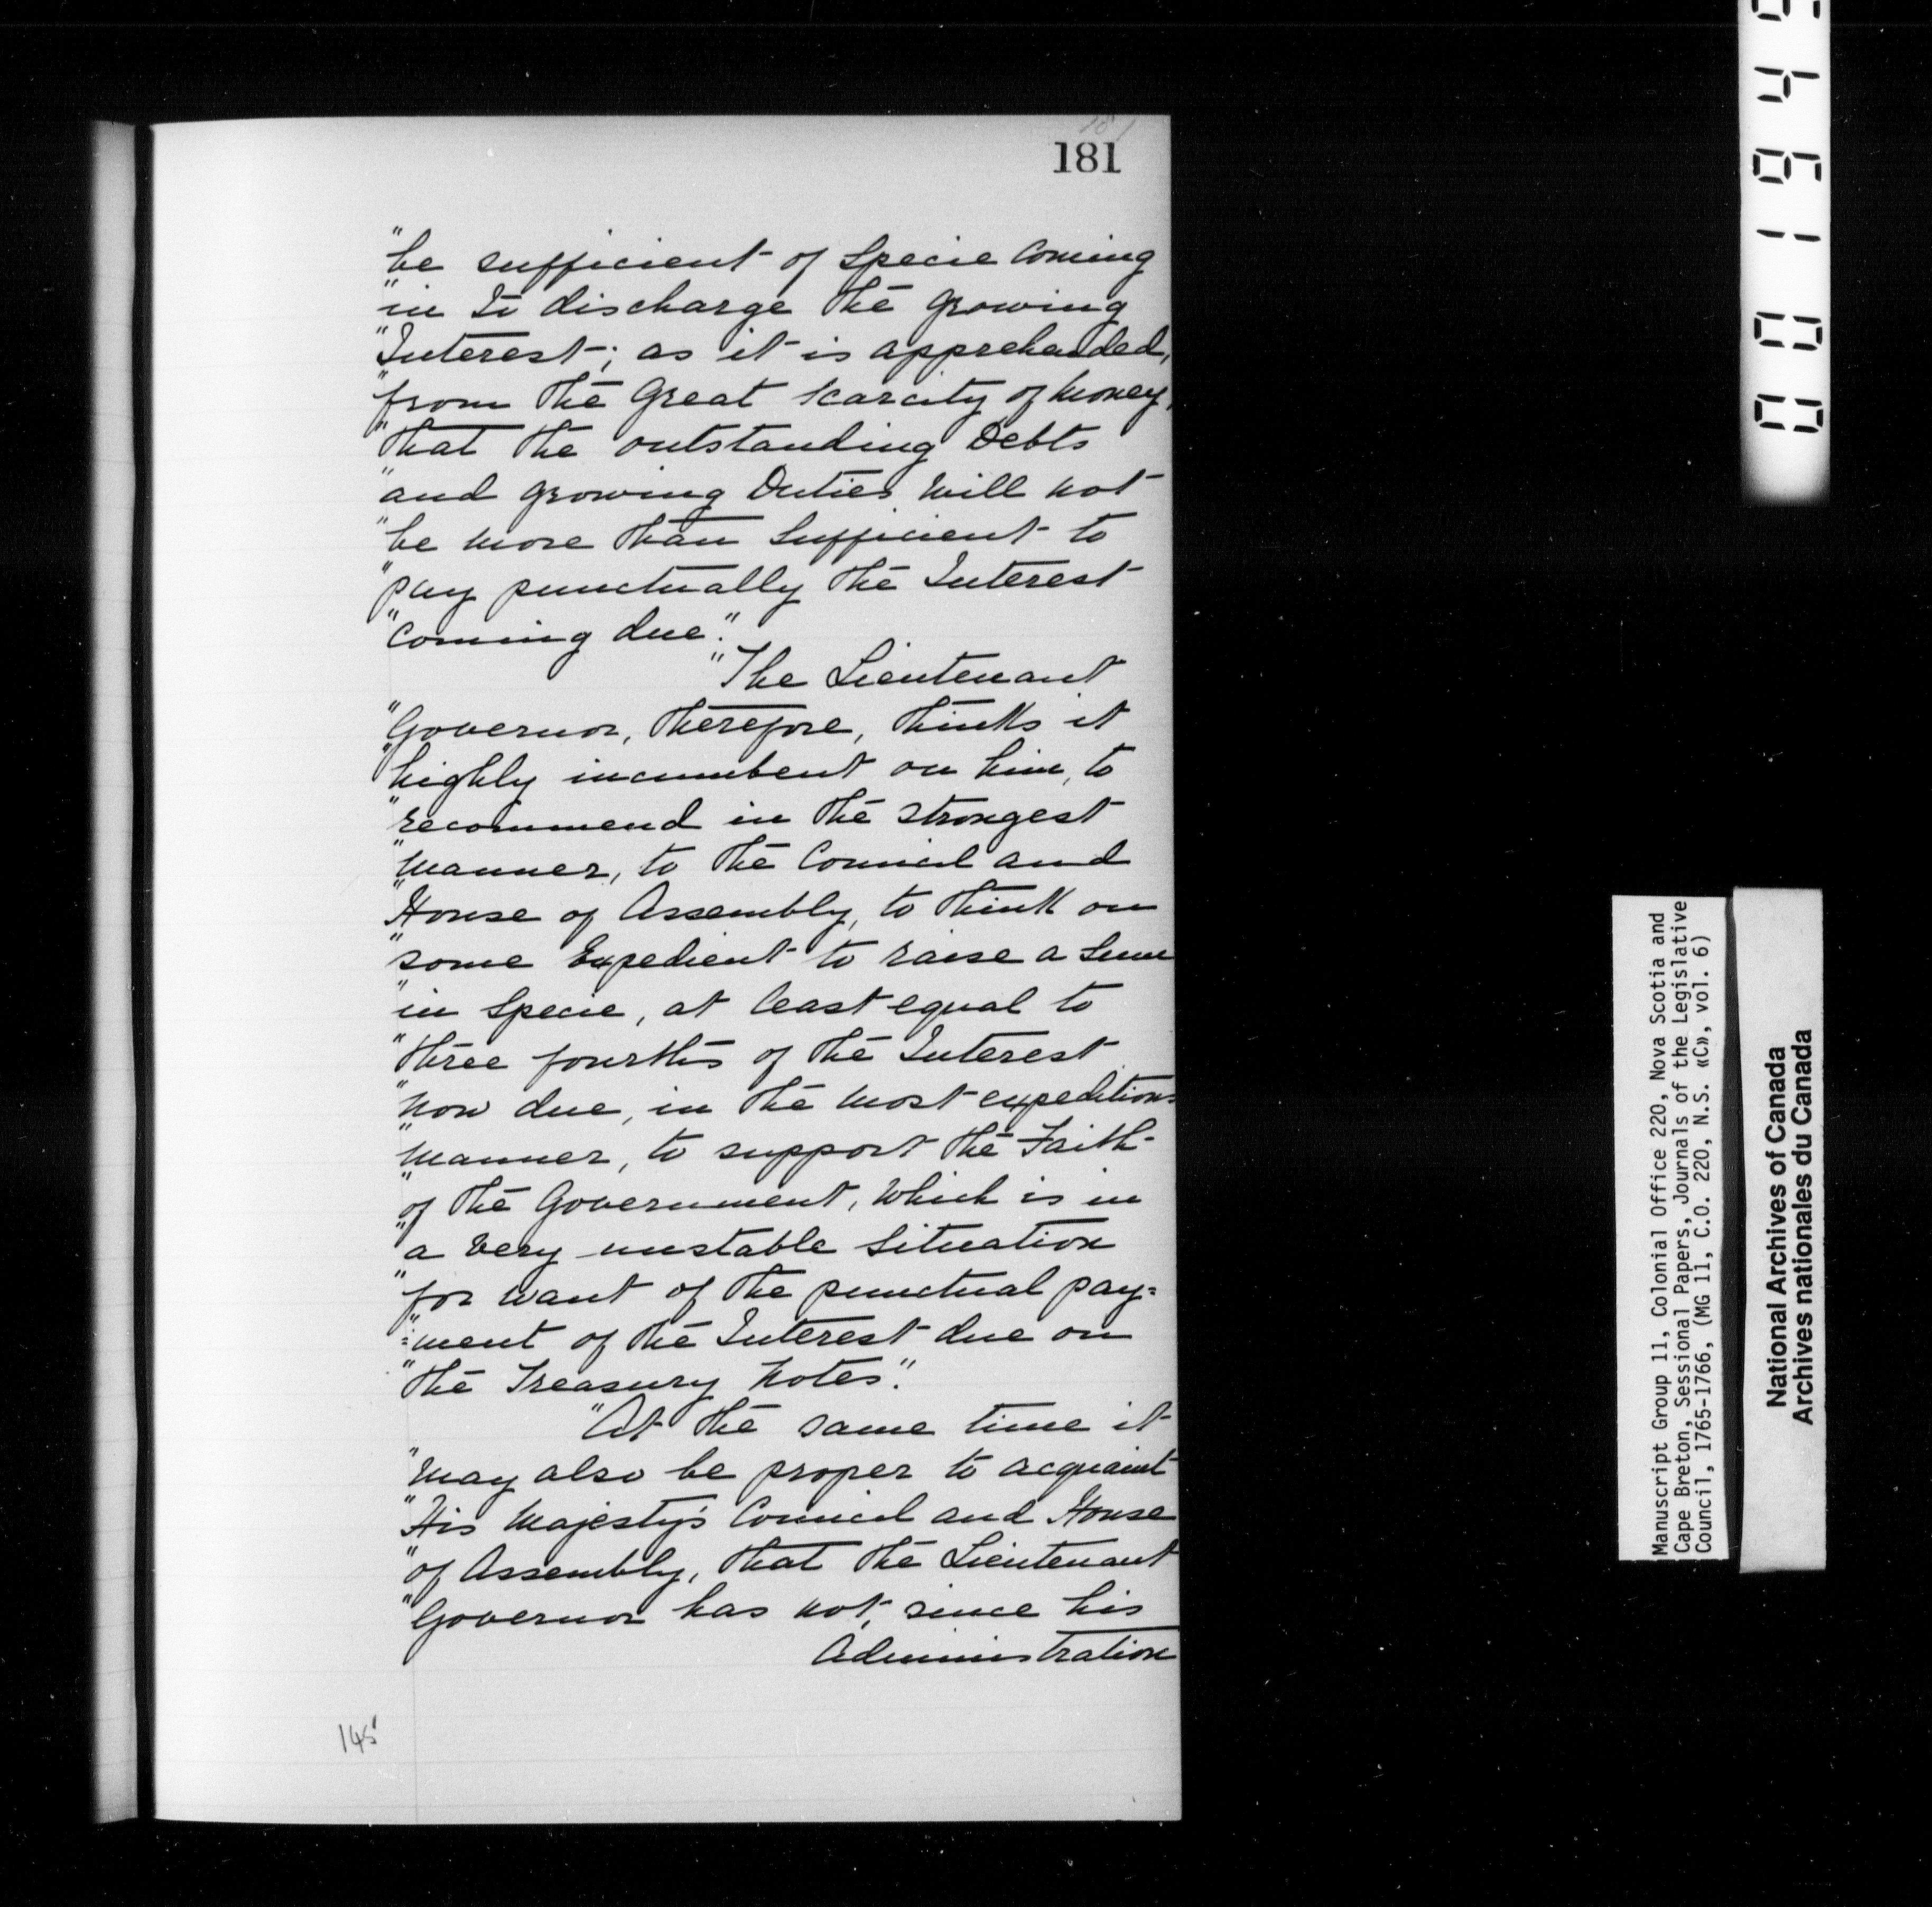 181
181
"be sufficient of Specie Coming
"in to discharge the growing
"Interest; as it is apprehended,
"from the Great Scarcity of money,
"that the outstanding Debts
"and growing Duties will not
"be more than sufficient to
"pay punctually the Interest
"Coming due."
"The Lieutenant
"Governor, therefore, thinks it
"highly incumbent on him, to
"recommend in the strongest
"manner, to the Council and
"House of Assembly, to think on
"some Expedient to raise a Sum
"in Specie, at least equal to
"three fourths of the Interest
"now due, in the most expeditious
"manner, to support the Faith
"of the Government, which is in
"a very unstable Situation
"for want of the punctual pay=
"=ment of the Interest due on
"the Treasury Notes."
"At the same time it
"may also be proper to acquaint
"His Majesty's Council and House
"of Assembly, that the Lieutenant
"Governor has not, since his
Administration
145
Manuscript Group 11, Colonial Office 220, Nova Scotia and
Cape Breton, Sessional Papers, Journals of the Legislative
Council, 1765-1766, (MG 11, C.O. 220, N.S. «C», vol. 6)
National Archives of Canada
Archives nationales du Canada